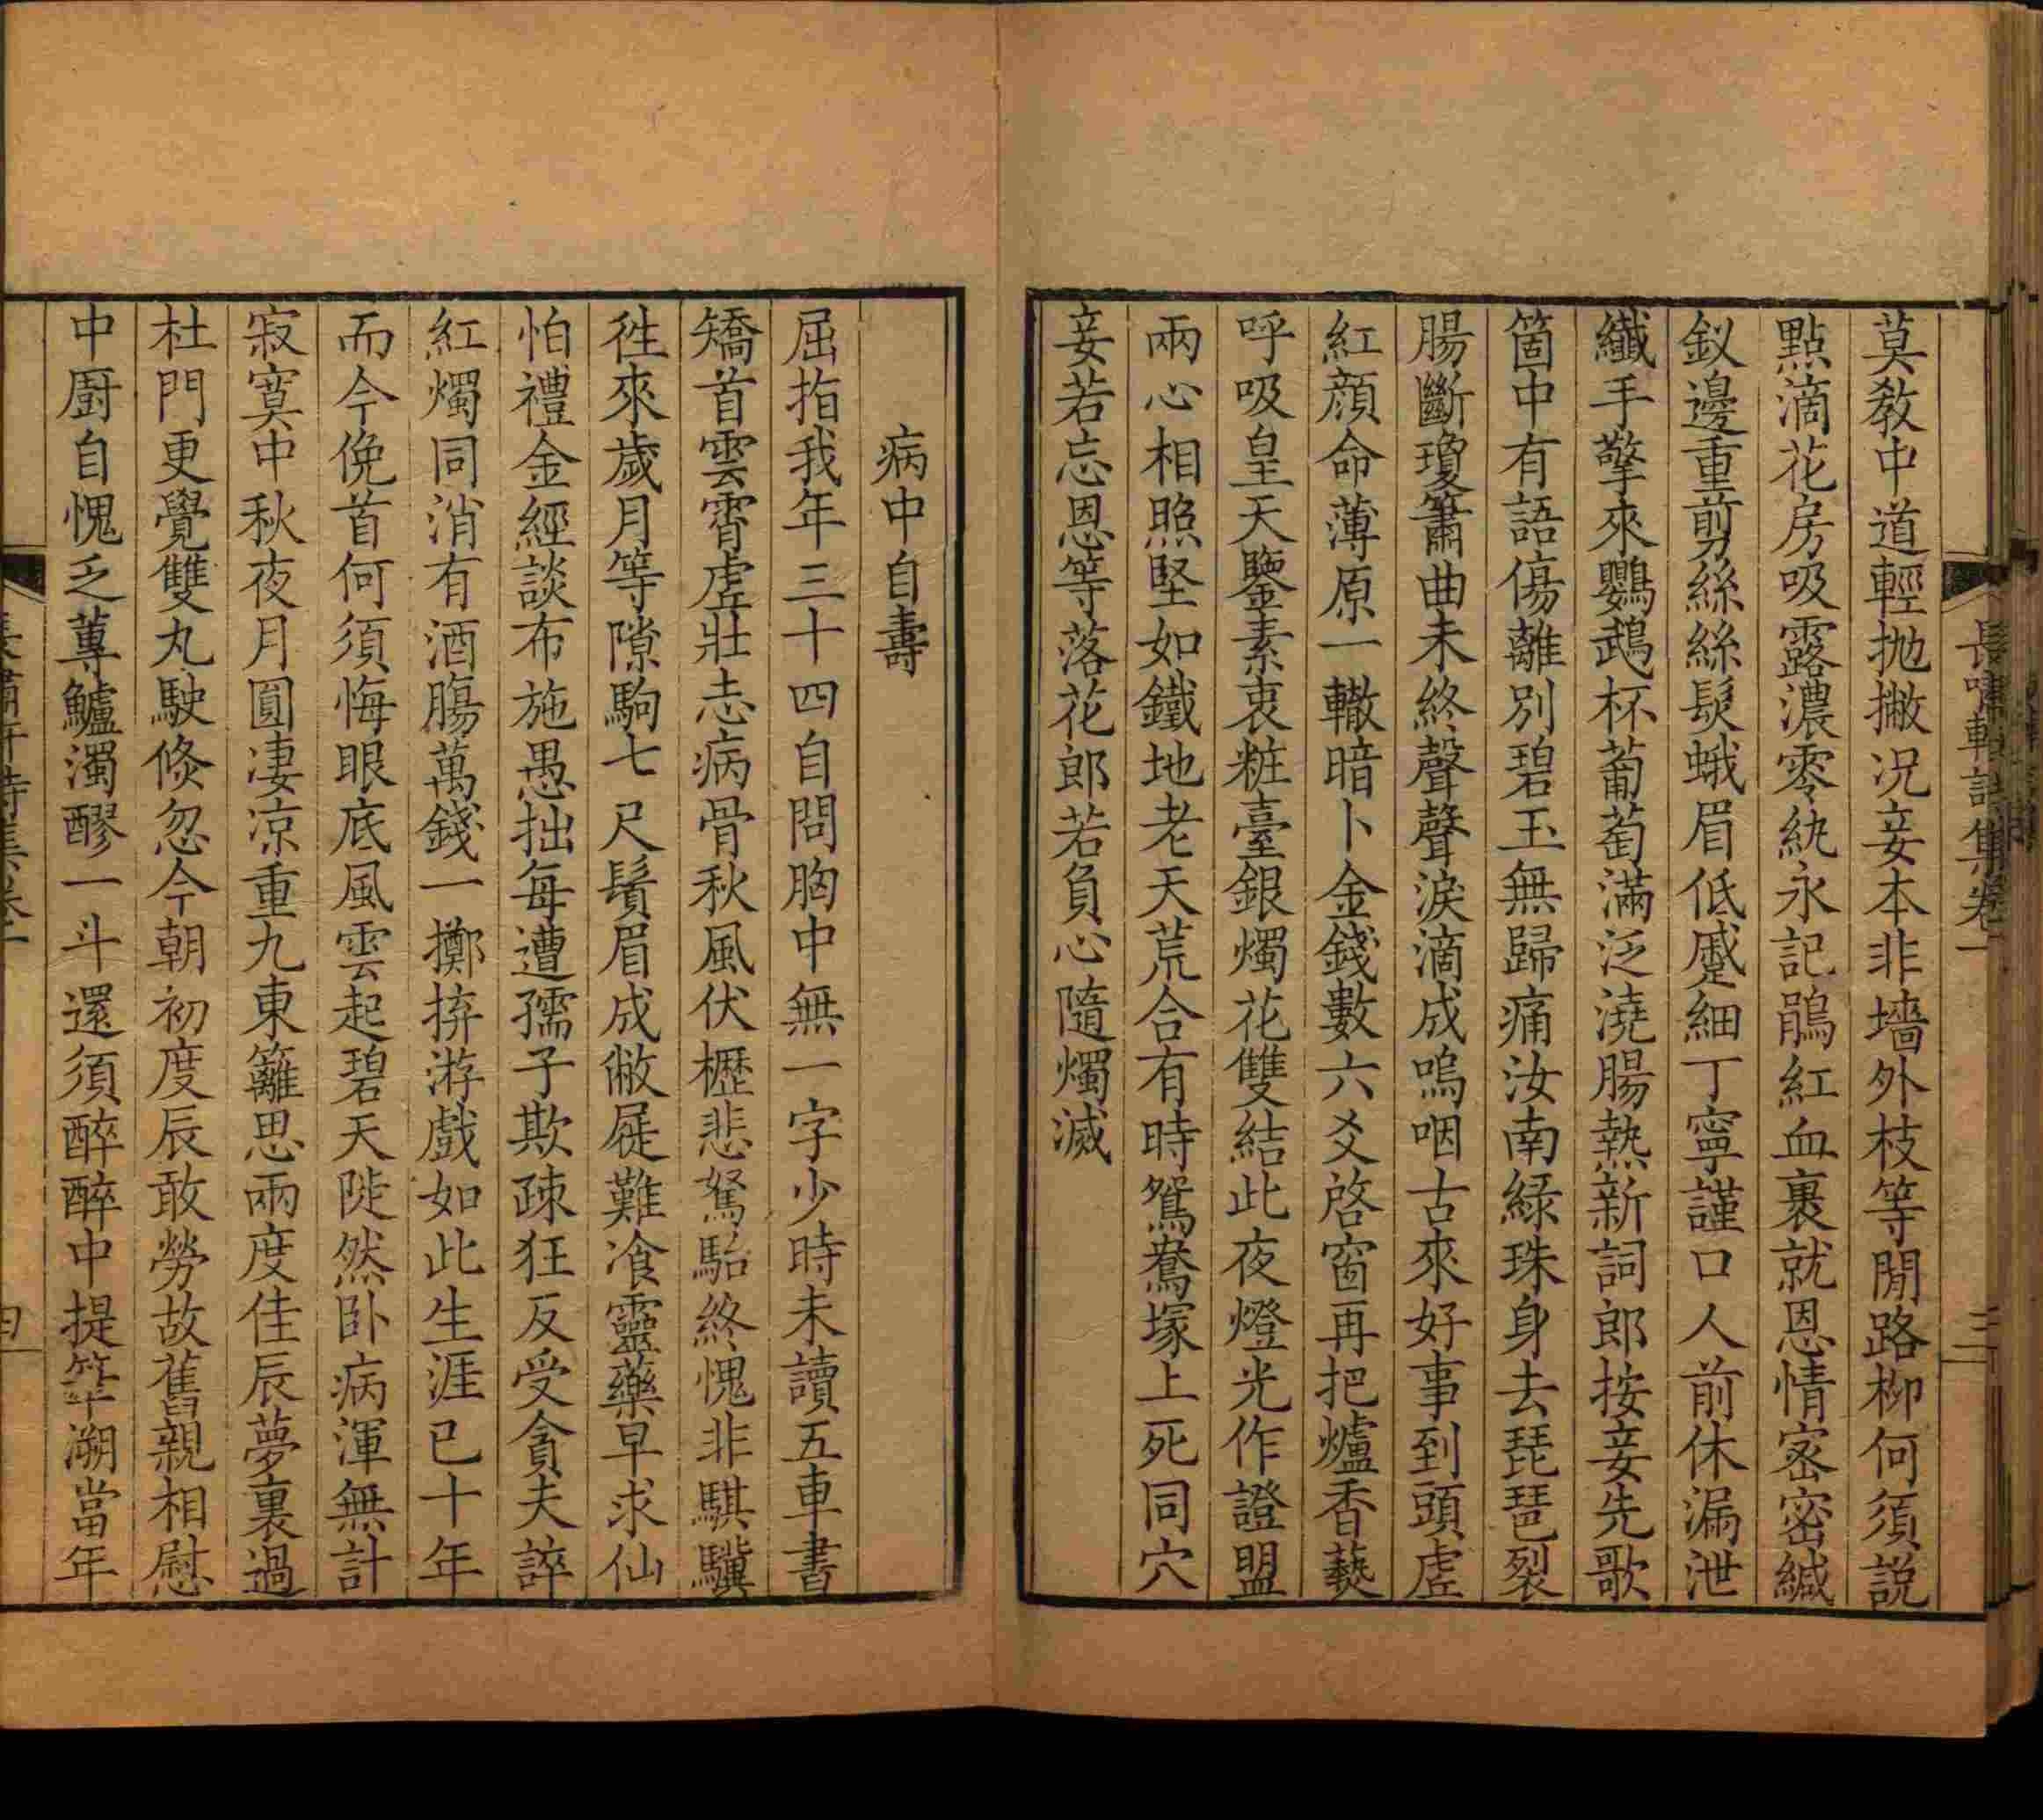 長嘯軒詩集卷一
三
莫教中道輕拋撇况妾本非墻外枝等閒路柳何須説
點滴花房吸露濃零紈永記鵑紅血裹就恩情宻宻緘
釵邊重剪絲絲髮蛾眉低蹙細丁寧謹口人前休漏泄
纖手擎來鸚鵡杯葡萄滿泛澆腸熱新詞郎按妾先歌
箇中有語傷離別碧玉無歸痛汝南緑珠身去琵琶裂
腸斷瓊簫曲未終聲聲淚滴成嗚咽古來好事到頭虛
紅顔命薄原一轍暗卜金錢數六爻啓窗再把爐香爇
呼吸皇天鑒素衷粧臺銀燭花雙結此夜燈光作證盟
兩心相照堅如鐵地老天荒合有時鴛鴦塚上死同穴
妾若忘恩等落花郎若負心隨燭滅
病中自壽
屈指我年三十四自問胸中無一字少時未讀五車書
矯首雲霄虛壯志病骨秋風伏櫪悲駑駘終愧非騏驥
徃來歲月等隙駒七尺鬚眉成敝屣難飡靈藥早求仙
怕禮金經談布施愚拙每遭孺子欺疎狂反受貪夫誶
紅燭同消有酒膓萬錢一擲拚游戲如此生涯已十年
而今俛首何須悔眼底風雲起碧天陡然卧病渾無計
寂寞中秋夜月圓凄凉重九東籬思兩度佳辰夢裏過
杜門更覺雙丸駛倐忽今朝初度辰敢勞故舊親相慰
中厨自愧乏蓴鱸濁醪一斗還須醉醉中提筆溯當年
長嘯軒詩集卷一
四